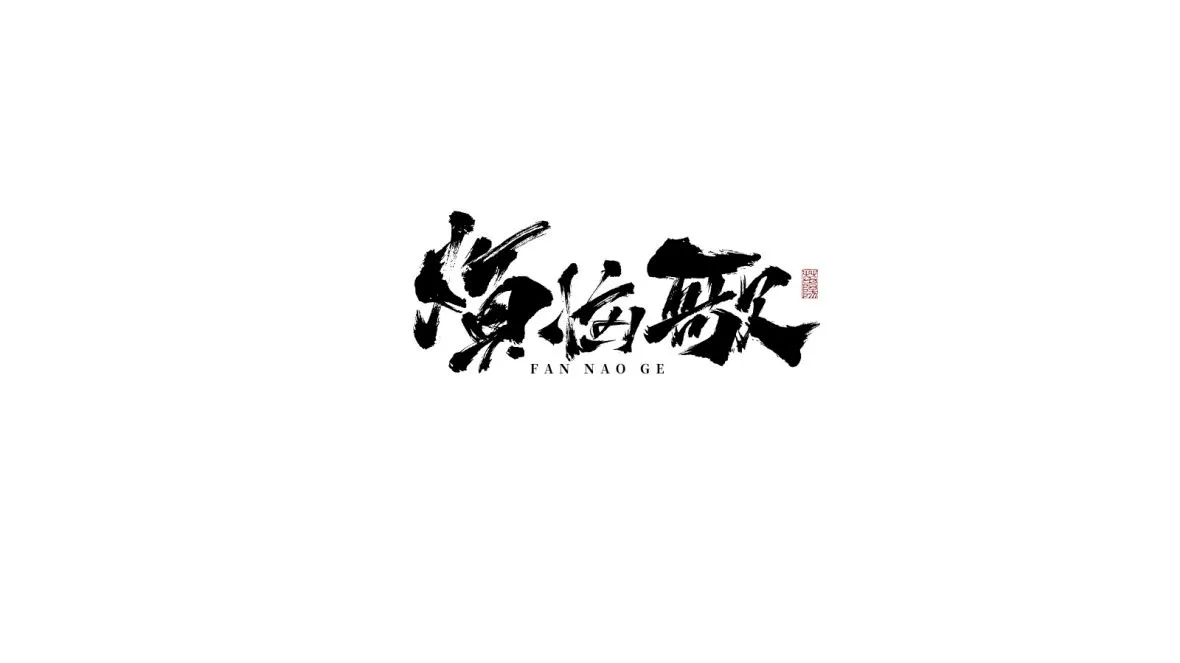 烦恼歌
FAN NAO GE